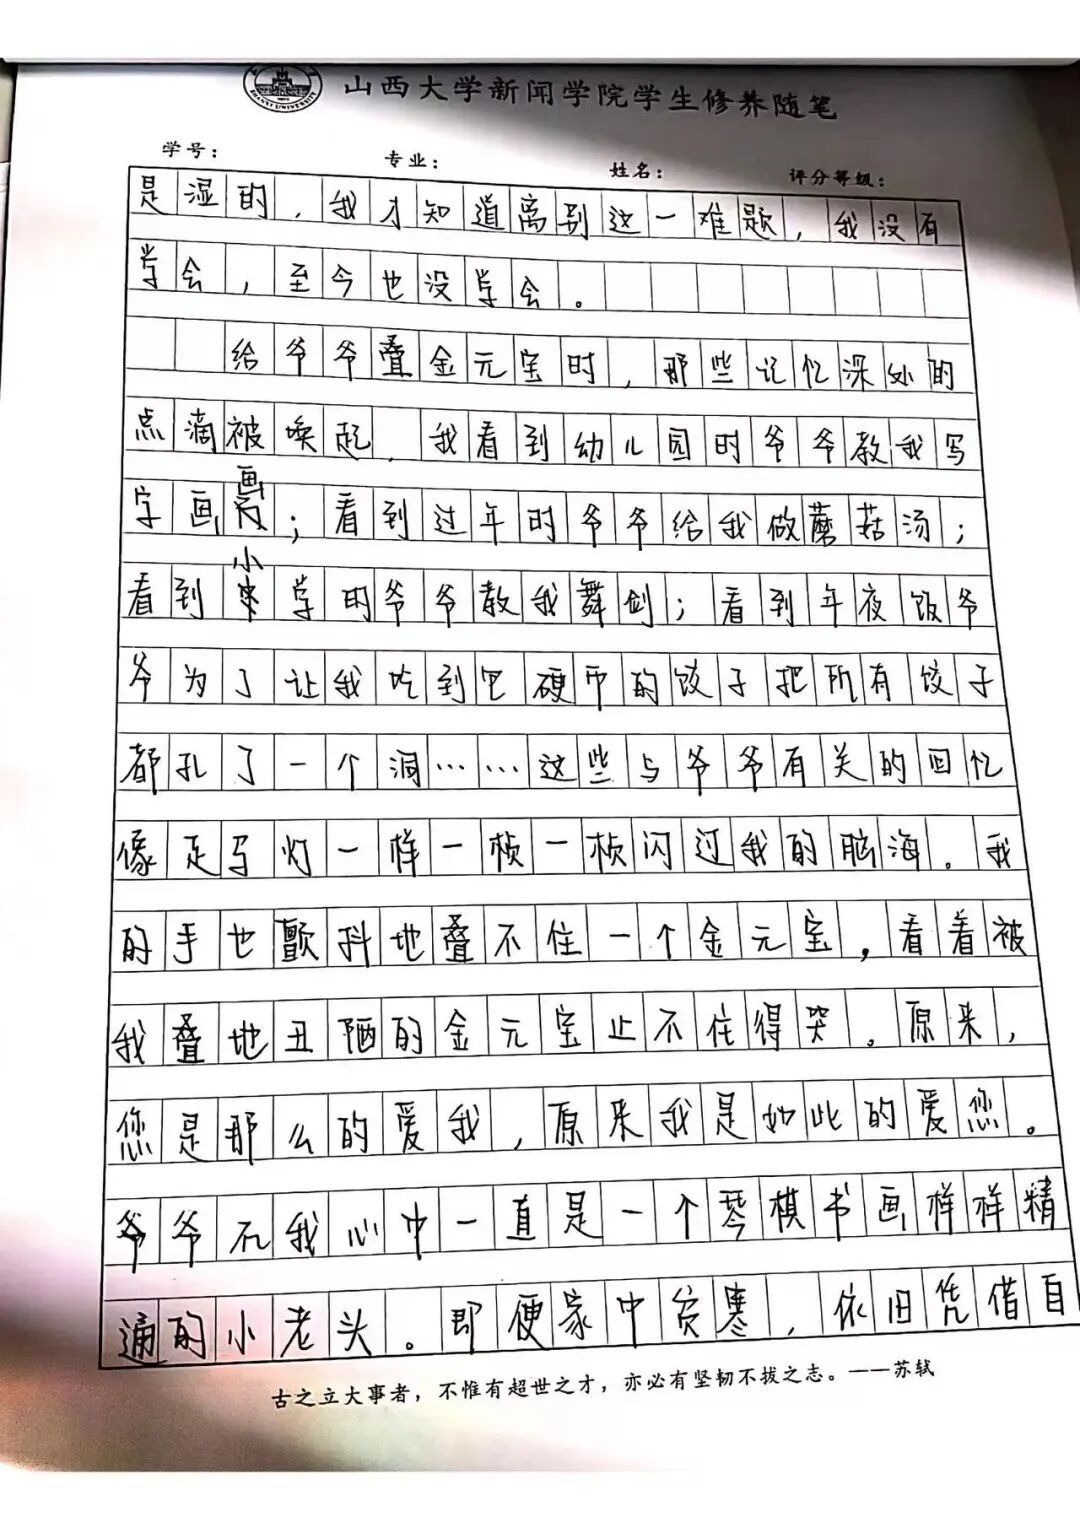 山西大学新闻学院学生修养随笔
学号： 专业： 姓名： 评分等级：
是湿的，我才知道离别这一难题，我没有
学会，至今也没学会。
给爷爷叠金元宝时，那些记忆深处的
点滴被唤起，我看到幼儿园时爷爷教我写
字画画；看到过年时爷爷给我做蘑菇汤；
看到小学时爷爷教我舞剑；看到年夜饭爷
爷为了让我吃到包硬币的饺子把所有饺子
都扎了一个洞……这些与爷爷有关的回忆
像走马灯一样一桢一桢闪过我的脑海。我
的手也颤抖地叠不住一个金元宝，看着被
我叠地丑陋的金元宝止不住得哭。原来，
您是那么的爱我，原来我是如此的爱您。
爷爷在我心中一直是一个琴棋书画样样精
通的小老头。即便家中贫寒，依旧凭借自
古之立大事者，不惟有超世之才，亦必有坚韧不拔之志。——苏轼